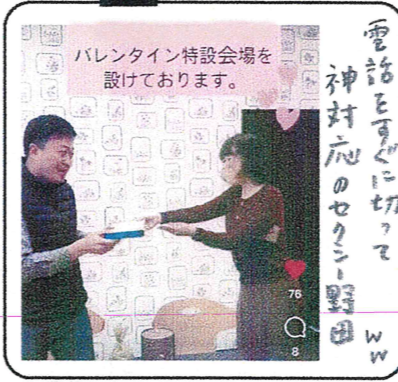 バレンタイン特設会場を
設けております。
76
8
電話をすぐに切って
神対応のセクシー野田
ww